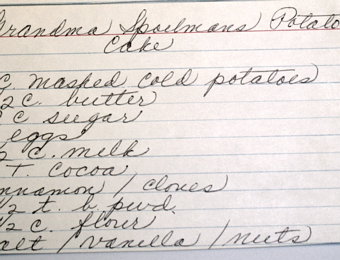 Grandma Spoelmans Potato
Cake
C. masped cold potatoes
2 c. butter
c sugar
eggs
2 c. milk
T. cocoa
nnamon / cloves
1/2 t. b. pwd.
1/2 c. flour
salt / vanilla / nuts